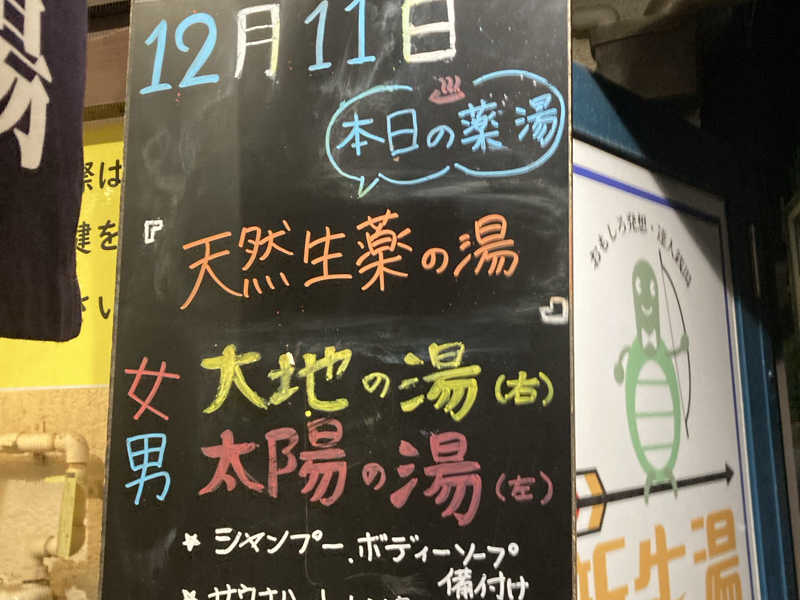 湯
12月11日
本日の薬湯
『天然生薬の湯』
女 大地の湯(右)
男 太陽の湯(左)
★ シャンプー、ボディーソープ
備付け
際は
鍵を
さい
おもしろ発想・達人銭湯
新生湯